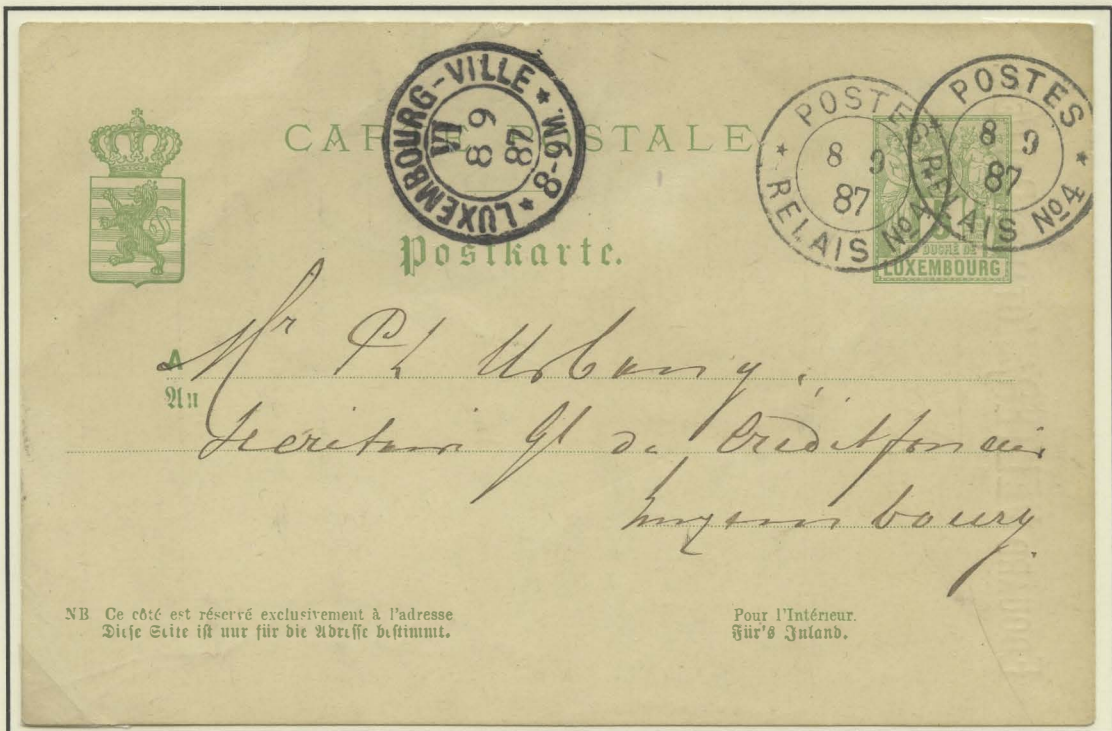 CARTE POSTALE
Postkarte.
LUXEMBOURG-VILLE
VII
8 9
87
8-9 M.
POSTES
8 9
87
RELAIS No4
POSTES
8 9
87
RELAIS No4
5
DUCHÉ DE
LUXEMBOURG
A
An
Mr Ph Urbany,
Secrétaire Gl du Crédit foncier
Luxembourg.
NB Ce côté est réservé exclusivement à l'adresse
Diese Seite ist nur für die Adresse bestimmt.
Pour l'Intérieur.
Für's Inland.